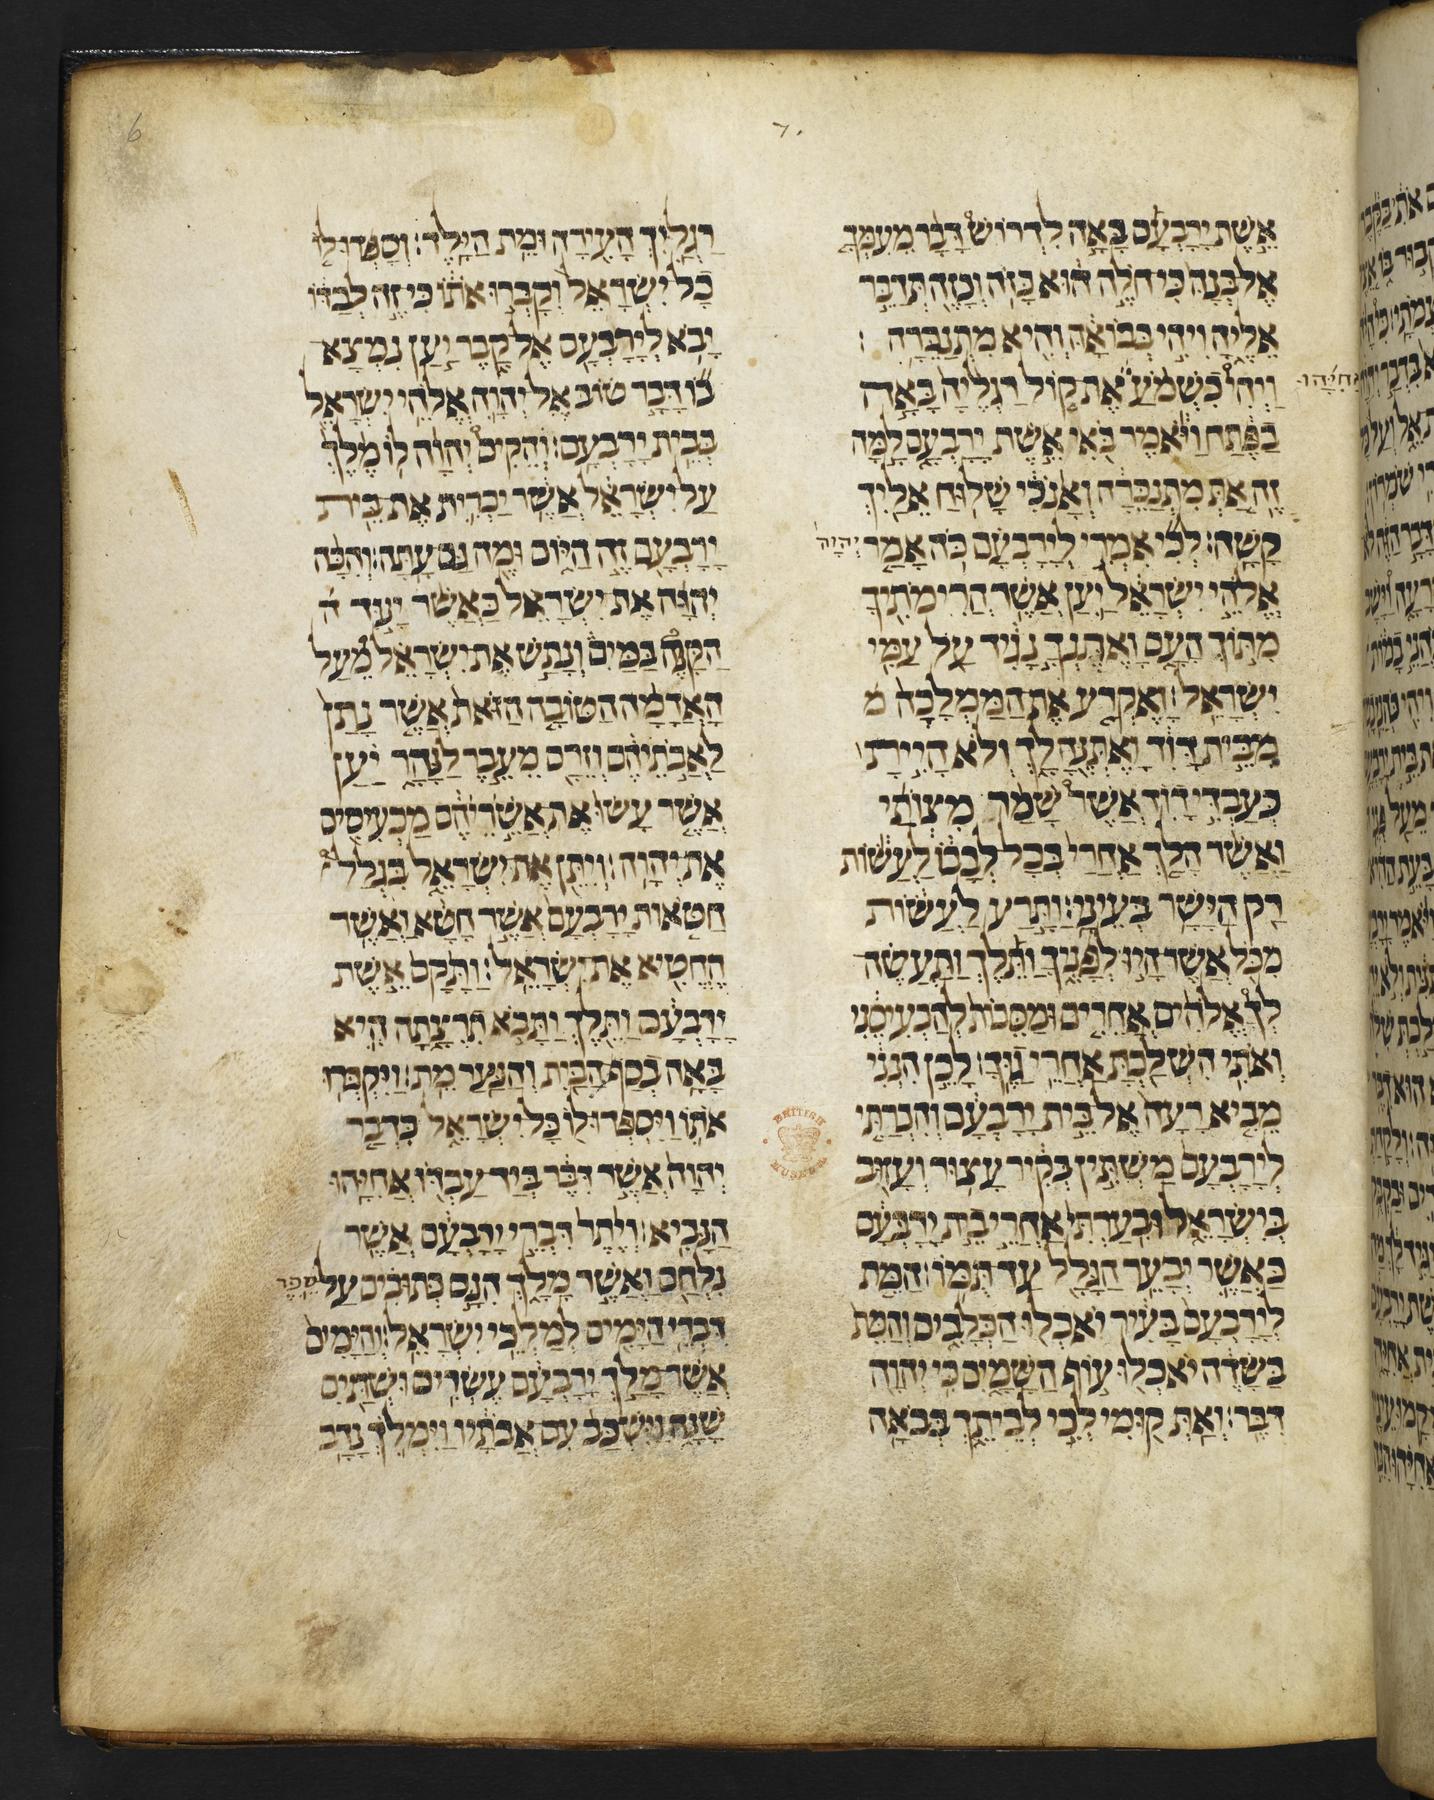 6
7.
אשת ירבעם באה לדרוש דבר מעמך
אל בנה כי חלה הוא כזה וכזה תדבר
אליה ויהי בבואה והיא מתנכרה :
ויהי כשמע את קול רגליה באה
אחיהו
בפתח ויאמר באי אשת ירבעם למה
זה את מתנכרה ואנכי שלוח אליך
קשה : לכי אמרי לירבעם כה אמר יהוה
אלהי ישראל יען אשר הרימתיך
מתוך העם ואתנך נגיד על עמי
ישראל : ואקרע את הממלכה מ
מבית דוד ואתנה לך ולא היית
כעבדי דוד אשר שמר מצותי
ואשר הלך אחרי בכל לבבו לעשות
רק הישר בעיני : ותרע לעשות
מכל אשר היו לפניך ותלך ותעשה
לך אלהים אחרים ומסכות להכעיסני
ואתי השלכת אחרי גוך : לכן הנני
מביא רעה אל בית ירבעם והכרתי
לירבעם משתין בקיר עצור ועזוב
בישראל ובערתי אחרי בית ירבעם
כאשר יבער הגלל עד תמו : המת
לירבעם בעיר יאכלו הכלבים והמת
בשדה יאכלו עוף השמים כי יהוה
דבר : ואת קומי לכי לביתך בבאה
רגליך העירה ומת הילד : וספדו לו
כל ישראל וקברו אתו כי זה לבדו
יבא לירבעם אל קבר יען נמצא
בו דבר טוב אל יהוה אלהי ישראל
בבית ירבעם : והקים יהוה לו מלך
על ישראל אשר יכרית את בית
ירבעם זה היום ומה גם עתה : והכה
יהוה את ישראל כאשר ינוד ה
הקנה במים ונתש את ישראל מעל
האדמה הטובה הזאת אשר נתן
לאבתיהם וזרם מעבר לנהר יען
אשר עשו את אשריהם מכעיסים
את יהוה : ויתן את ישראל בגלל
חטאות ירבעם אשר חטא ואשר
החטיא את ישראל : ותקם אשת
ירבעם ותלך ותבא תרצתה היא
באה בסף הבית והנער מת : ויקברו
אתו ויספדו לו כל ישראל כדבר
יהוה אשר דבר ביד עבדו אחיהו
הנביא : ויתר דברי ירבעם אשר
נלחם ואשר מלך הנם כתובים על ספר
דברי הימים למלכי ישראל : והימים
אשר מלך ירבעם עשרים ושתים
שנה וישכב עם אבתיו וימלך נדב
BRITISH MUSEUM